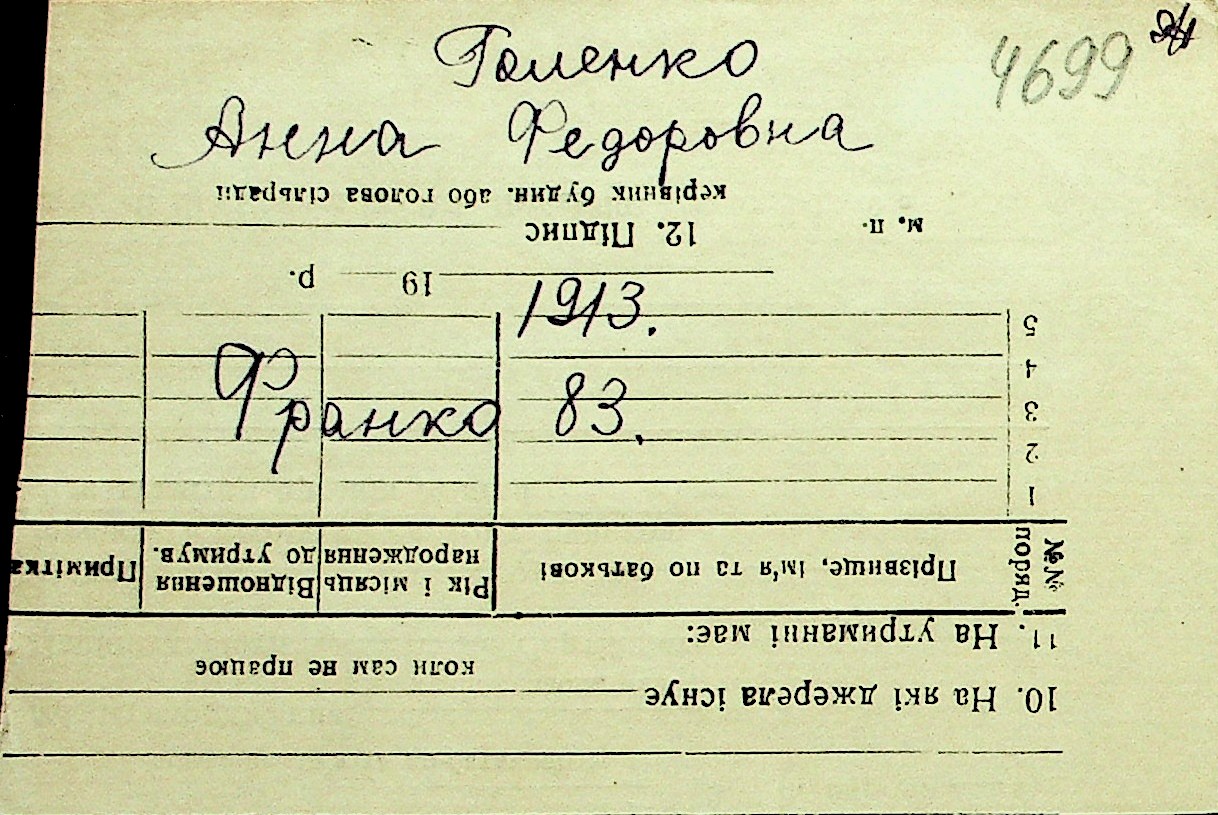 4699
Голенко
Анна Федоровна
1913.
Франко 83.
10. На які джерела існує
коли сам не працює
11. На утриманні має:
№№ поряд. Прізвище, ім'я та по батькові Рік і місяць народження Відношення до утримув. Примітка
1
2
3
4
5
19 р.
м. п. 12. Підпис
керівник будин. або голова сільради